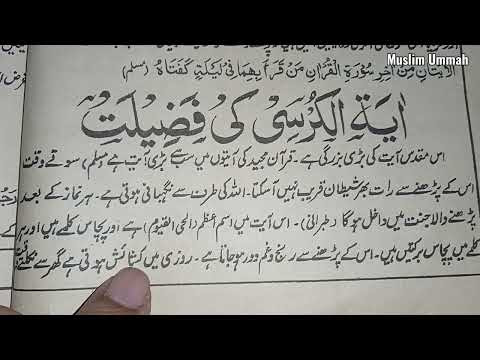 Muslim Ummah
الایتان من اٰخر سورۃ القراٰن من قرأ بھما فی لیلۃ کفتاہ (مسلم)
اٰیۃ الکرسی کی فضیلت
اس مقدس آیت کی بڑی بزرگی ہے۔ قرآن مجید کی آیتوں میں سب سے بڑی آیت ہے (مسلم) سوتے وقت
اس کے پڑھنے سے رات بھر شیطان قریب نہیں آسکتا۔ اللہ کی طرف سے نگہبانی ہوتی ہے۔ ہر نماز کے بعد
پڑھنے والا جنت میں داخل ہو گا (طبرانی)۔ اس آیت میں اسم اعظم (الحی القیوم) ہے اور پچاس کلمے ہیں اور ہر
کلمے میں پچاس برکتیں ہیں۔ اس کے پڑھنے سے رنج و غم دور ہو جاتا ہے۔ روزی میں کشائش ہوتی ہے گھر سے نکلتے